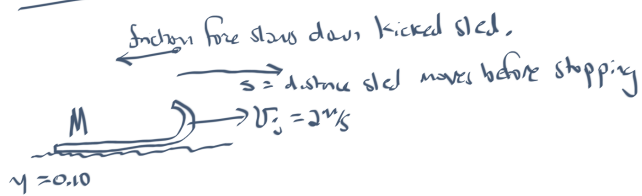 friction force slows down kicked sled.
s = distance sled moves before stopping
M
v_i = 2 m/s
μ = 0.10